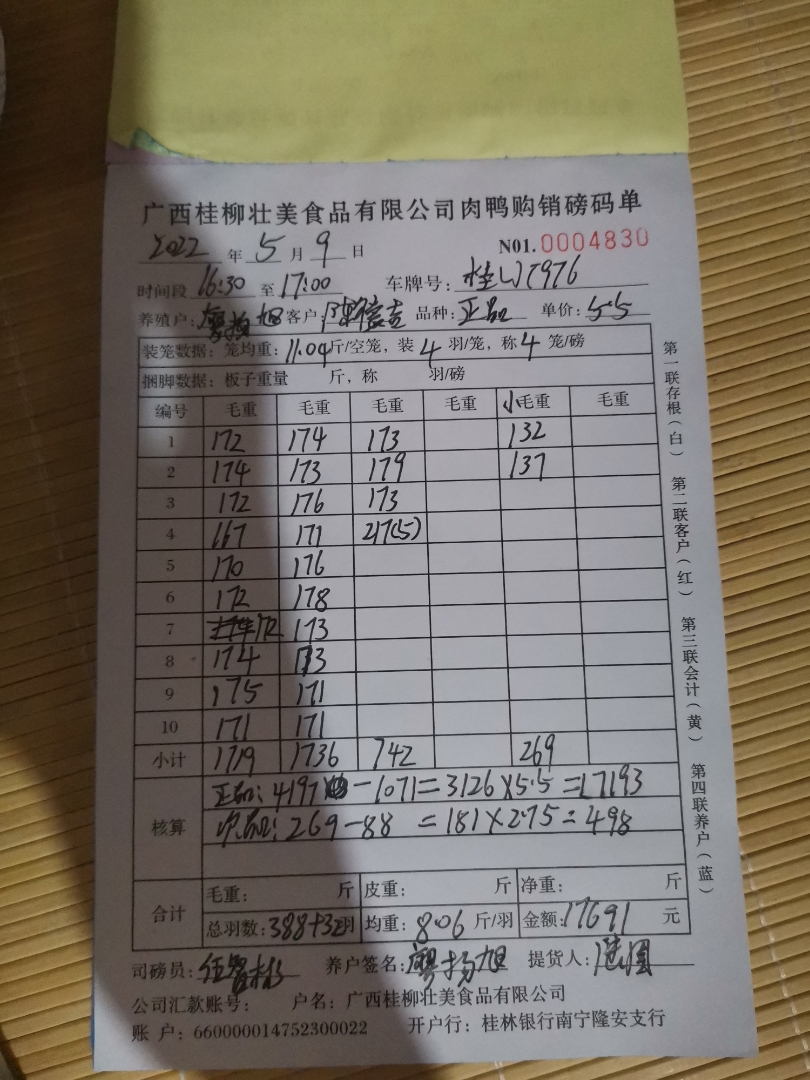 广西桂柳壮美食品有限公司肉鸭购销磅码单
2022 年 5 月 9 日 N01.0004830
时间段 16:30 至 17:00 车牌号: 桂 7976
养殖户: 廖扬旭 客户: 陈信吉 品种: 正品 单价: 5.5
装笼数据: 笼均重: 11.04 斤/空笼, 装 4 羽/笼, 称 4 笼/磅
捆脚数据: 板子重量 斤, 称 羽/磅
编号 毛重 毛重 毛重 毛重 小毛重 毛重
1 172 174 173 132
2 174 173 179 137
3 172 176 173
4 167 171 217(5)
5 170 176
6 172 178
7 172 173
8 174 173
9 175 171
10 171 171
小计 1719 1736 742 269
正品: 4197 -1071=3126×5.5=17193
核算 次品: 269-88 =181×2.75=498
合计 毛重: 斤 皮重: 斤 净重: 斤
总羽数: 388+32羽 均重: 8.06 斤/羽 金额: 17691 元
司磅员: 养户签名: 廖扬旭 提货人:
公司汇款账号: 户名: 广西桂柳壮美食品有限公司
账 户: 660000014752300022 开户行: 桂林银行南宁隆安支行
第一联存根(白) 第二联客户(红) 第三联会计(黄) 第四联养户(蓝)